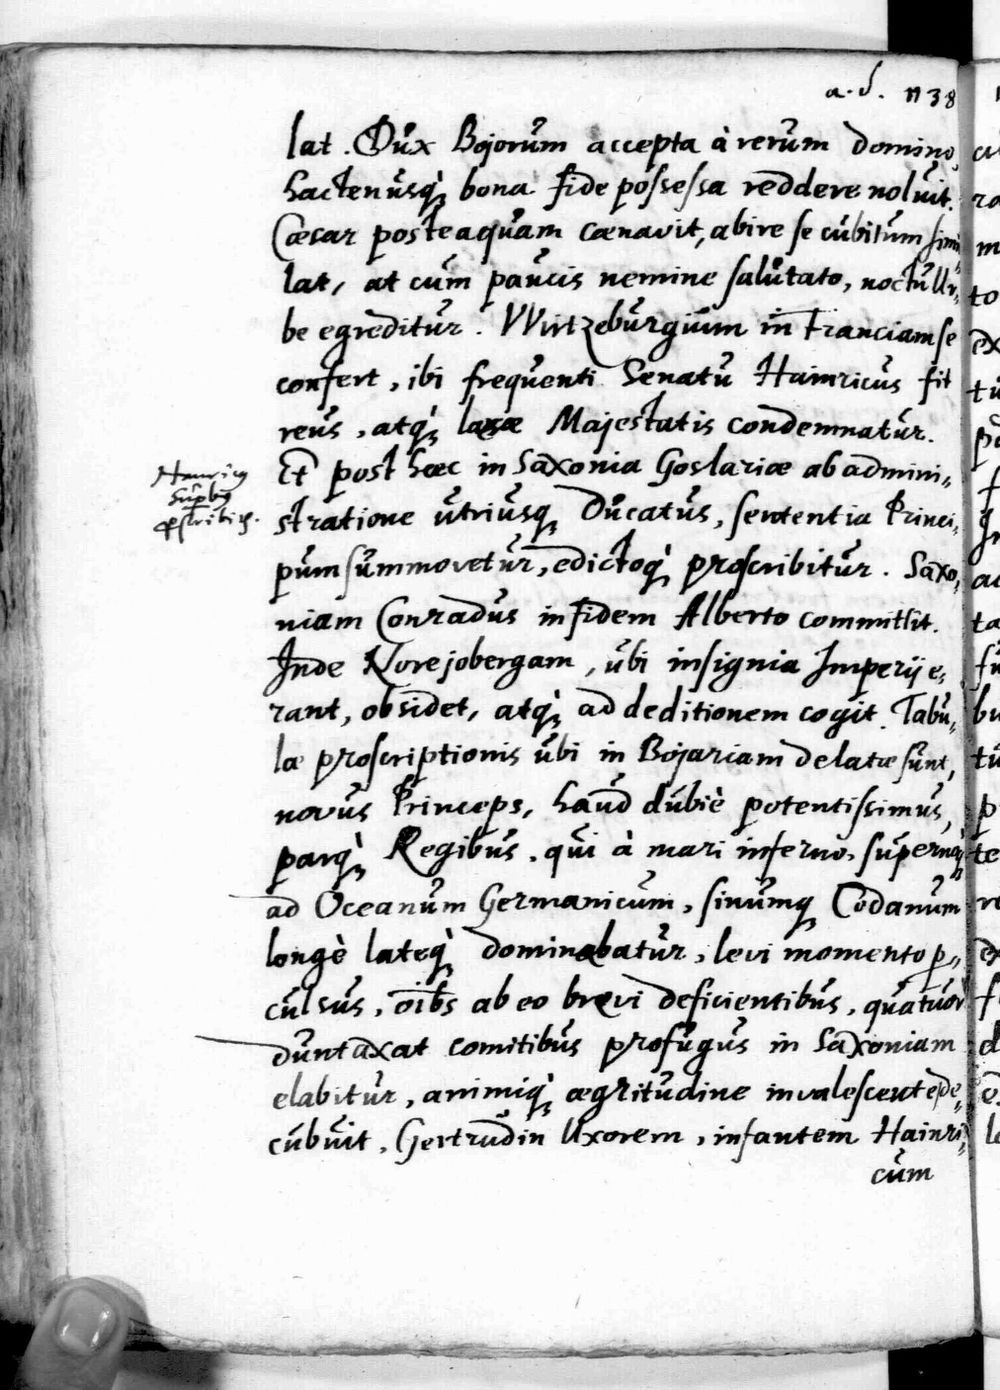 a. d. 1138
lat. Dux Bojorum accepta à rerum domino,
hactenusq; bona fide possessa reddere noluit.
Cæsar posteaquam cænavit, abire se cubitum simu-
lat, at cum paucis nemine salutato, noctu Ur-
be egreditur. Wirtzeburgium in Franciam se
confert, ibi frequenti Senatu Hainricus fit
reus, atq; læsæ Majestatis condemnatur.
Et post hæc in Saxonia Goslariæ ab admini-
stratione utriusq; Ducatus, sententia Princi-
pum summovetur, edictoq; proscribitur. Saxo-
niam Conradus in fidem Alberto committit.
Inde Norejobergam, ubi insignia Imperij e-
rant, obsidet, atq; ad deditionem cogit. Tabu-
læ proscriptionis ubi in Bojariam delatæ sunt,
novus Princeps, haud dubiè potentissimus,
parq; Regibus. qui à mari inferno, supernoq;
ad Oceanum Germanicum, sinumq; Codanum
longè lateq; dominabatur, levi momento p-
culsus, oībs ab eo brevi deficientibus, quatuor
duntaxat comitibus profugus in Saxoniam
elabitur, animiq; ægritudine invalescente, de-
cubuit, Gertrudin Uxorem, infantem Hainri-
cum
Henricus
Supbus
pscribit.